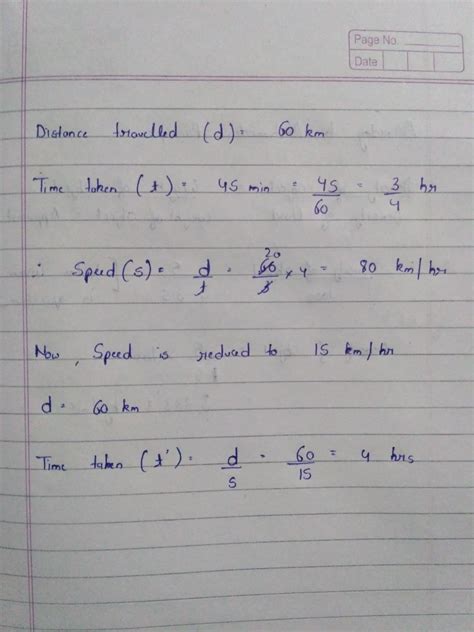 Page No.
Date
Distance travelled (d) = 60 km
Time taken (t) = 45 min = 45/60 = 3/4 hr
∴ Speed (s) = d/t = 60/3 20 × 4 = 80 km/hr
Now, Speed is reduced to 15 km/hr
d = 60 km
Time taken (t') = d/s = 60/15 = 4 hrs